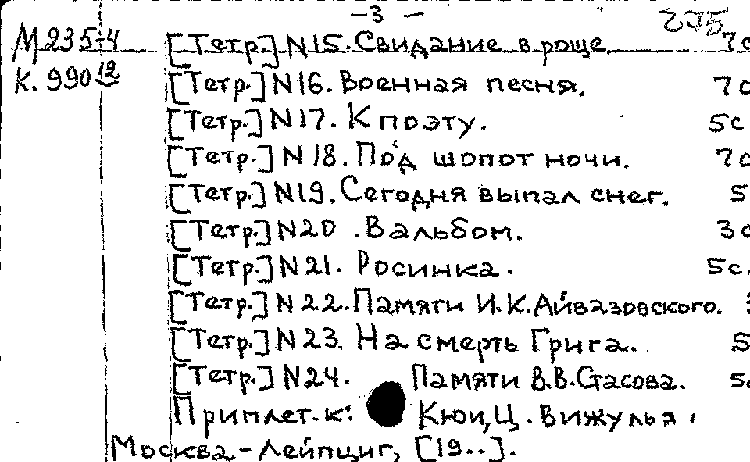 -3-
275
М 235-4 [Тетр.] N15. Свидание в роще. 7с
К. 990 12 [Тетр.] N16. Военная песня. 7с
[Тетр.] N17. К поэту. 5с
[Тетр.] N18. Под шопот ночи. 7с
[Тетр.] N19. Сегодня выпал снег. 5
[Тетр.] N20. В альбом. 3с
[Тетр.] N21. Росинка. 5с.
[Тетр.] N22. Памяти И.К. Айвазовского.
[Тетр.] N23. На смерть Грига. 5
[Тетр.] N24. Памяти В.В. Стасова. 5с
Приплет. к: Кюи, Ц. Вижу лья.
Москва-Лейпциг, [19..].